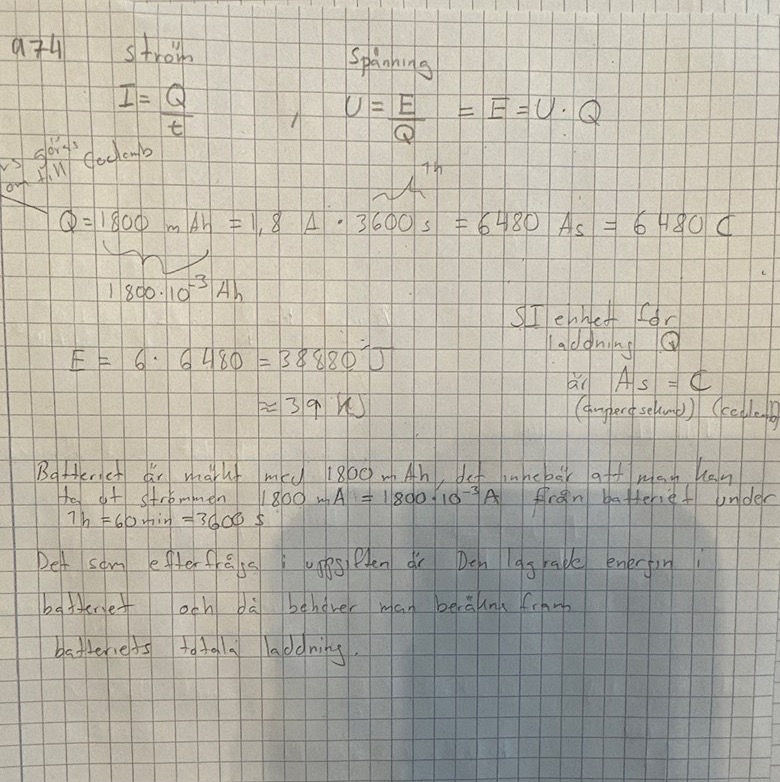 974 ström Spänning
I = Q/t , U = E/Q = E = U · Q
görs coulomb
om till
1h
Q = 1800 mAh = 1,8 A · 3600 s = 6480 As = 6480 C
1800·10⁻³ Ah
SI enhet för
laddning Q
är As = C
(amperesekund) (coulomb)
E = 6 · 6480 = 38880 J
≈ 39 kJ
Batteriet är märkt med 1800 mAh, det innebär att man kan
ta ut strömmen 1800 mA = 1800·10⁻³ A från batteriet under
1h = 60 min = 3600 s
Det som efterfråga i uppgiften är Den lagrade energin i
batteriet och då behöver man beräkna fram
batteriets totala laddning.